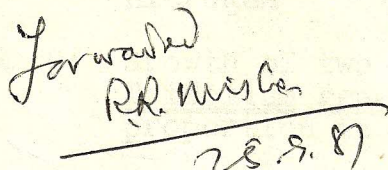 Forwarded
R.R. Mishra
28.9.81